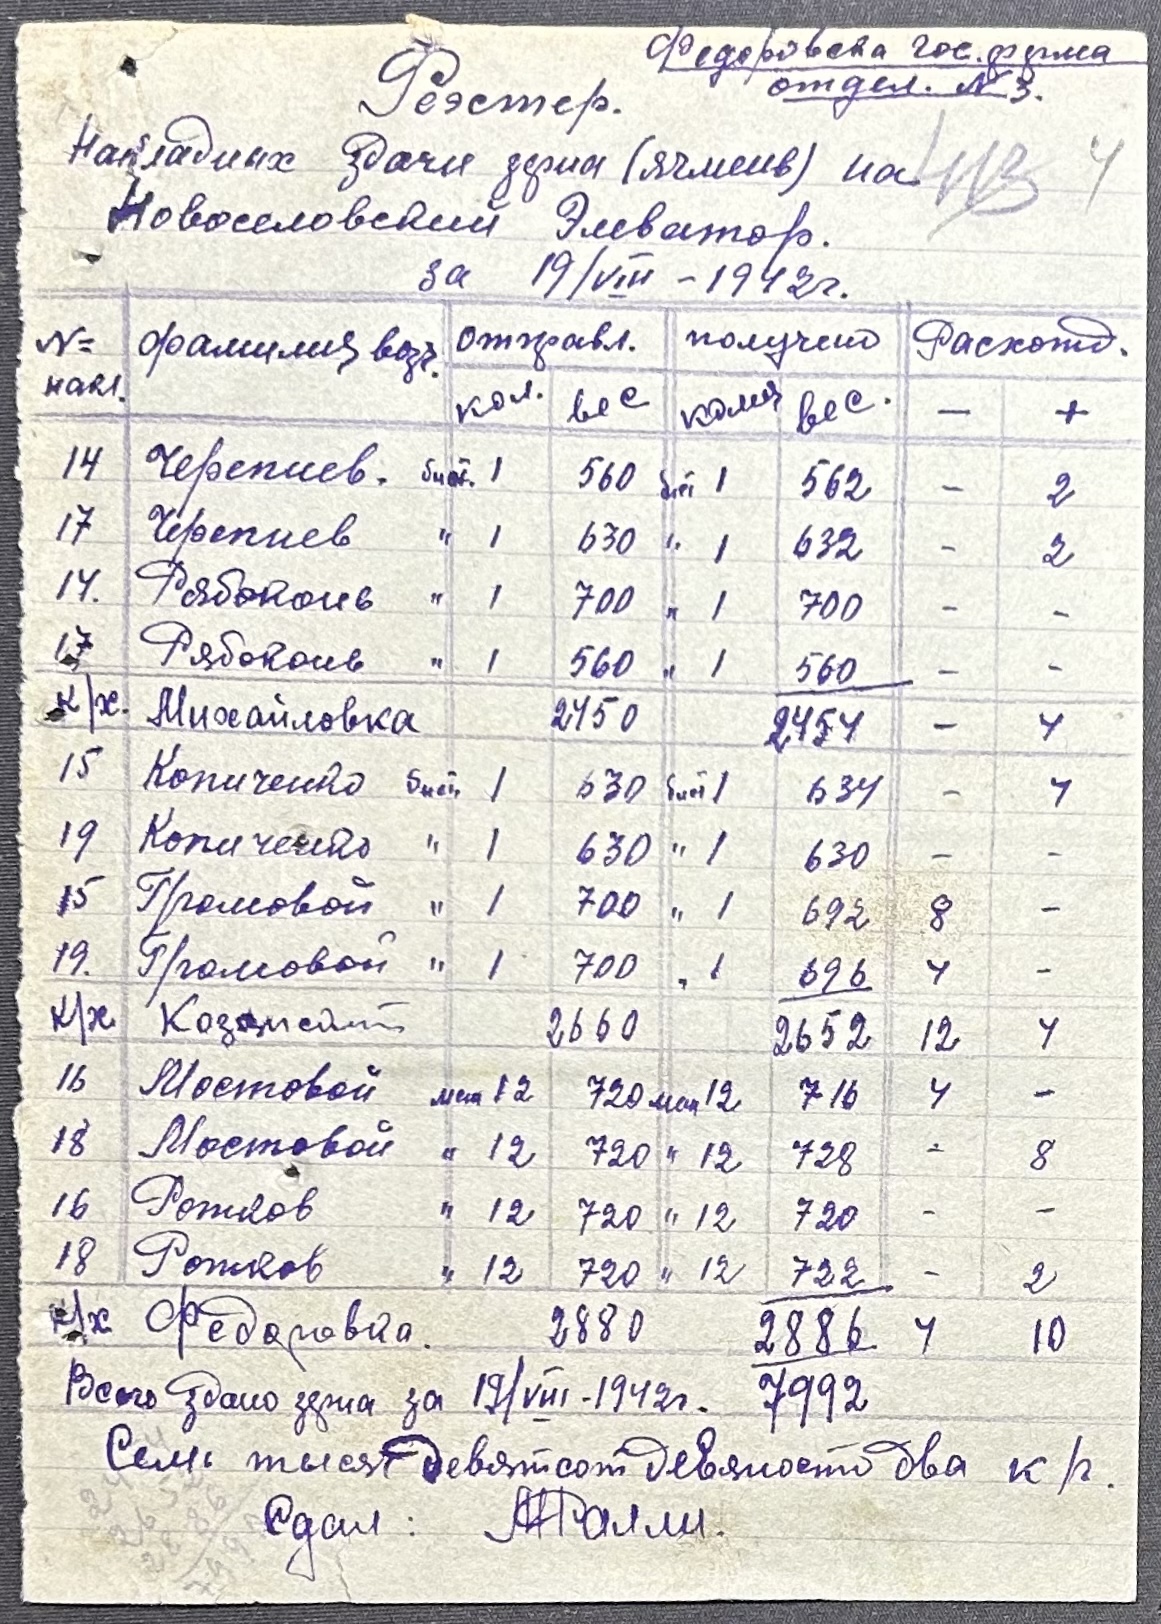 Федоровска гос. ферма
отдел. № 3.
Реэстер.
Накладных здачи зерна (ячмень) на
Новоселовский Элеватор.
за 19/VIII - 1942 г.
№ накл. фамилия возч. отправл. получено Расхожд.
кол. вес колич вес. - +
14 Черепнев. бист. 1 560 бист 1 562 - 2
17 Черепнев " 1 630 " 1 632 - 2
14. Рябоконь " 1 700 " 1 700 - -
17 Рябоконь " 1 560 " 1 560 - -
к/х. Михайловка 2450 2454 - 4
15 Копиченко бист 1 630 бист 1 634 - 4
19 Копиченко " 1 630 " 1 630 - -
15 Громовой " 1 700 " 1 692 8 -
19. Громовой " 1 700 " 1 696 4 -
к/х 2660 2652 12 4
16 Мостовой меш 12 720 меш 12 716 4 -
18 Мостовой " 12 720 " 12 728 - 8
16 Рожков " 12 720 " 12 720 - -
18 Рожков " 12 720 " 12 722 - 2
к/х Федоровка. 2880 2886 4 10
Всего здано зерна за 19/VIII - 1942 г. 7992
Семь тысяч девятсот девяносто два к/г.
Сдал: